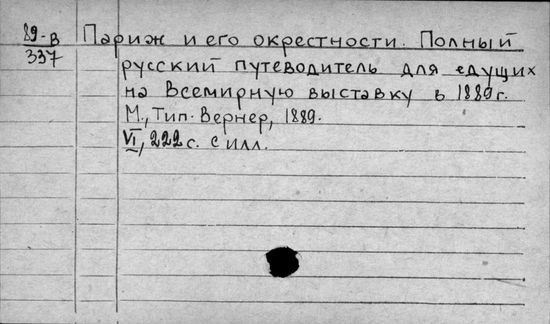 89-В Париж и его окрестности. Полный
337 русский путеводитель для едущих
на Всемирную выставку в 1889г.
М., Тип. Вернер, 1889.
VI, 222 с. с илл.